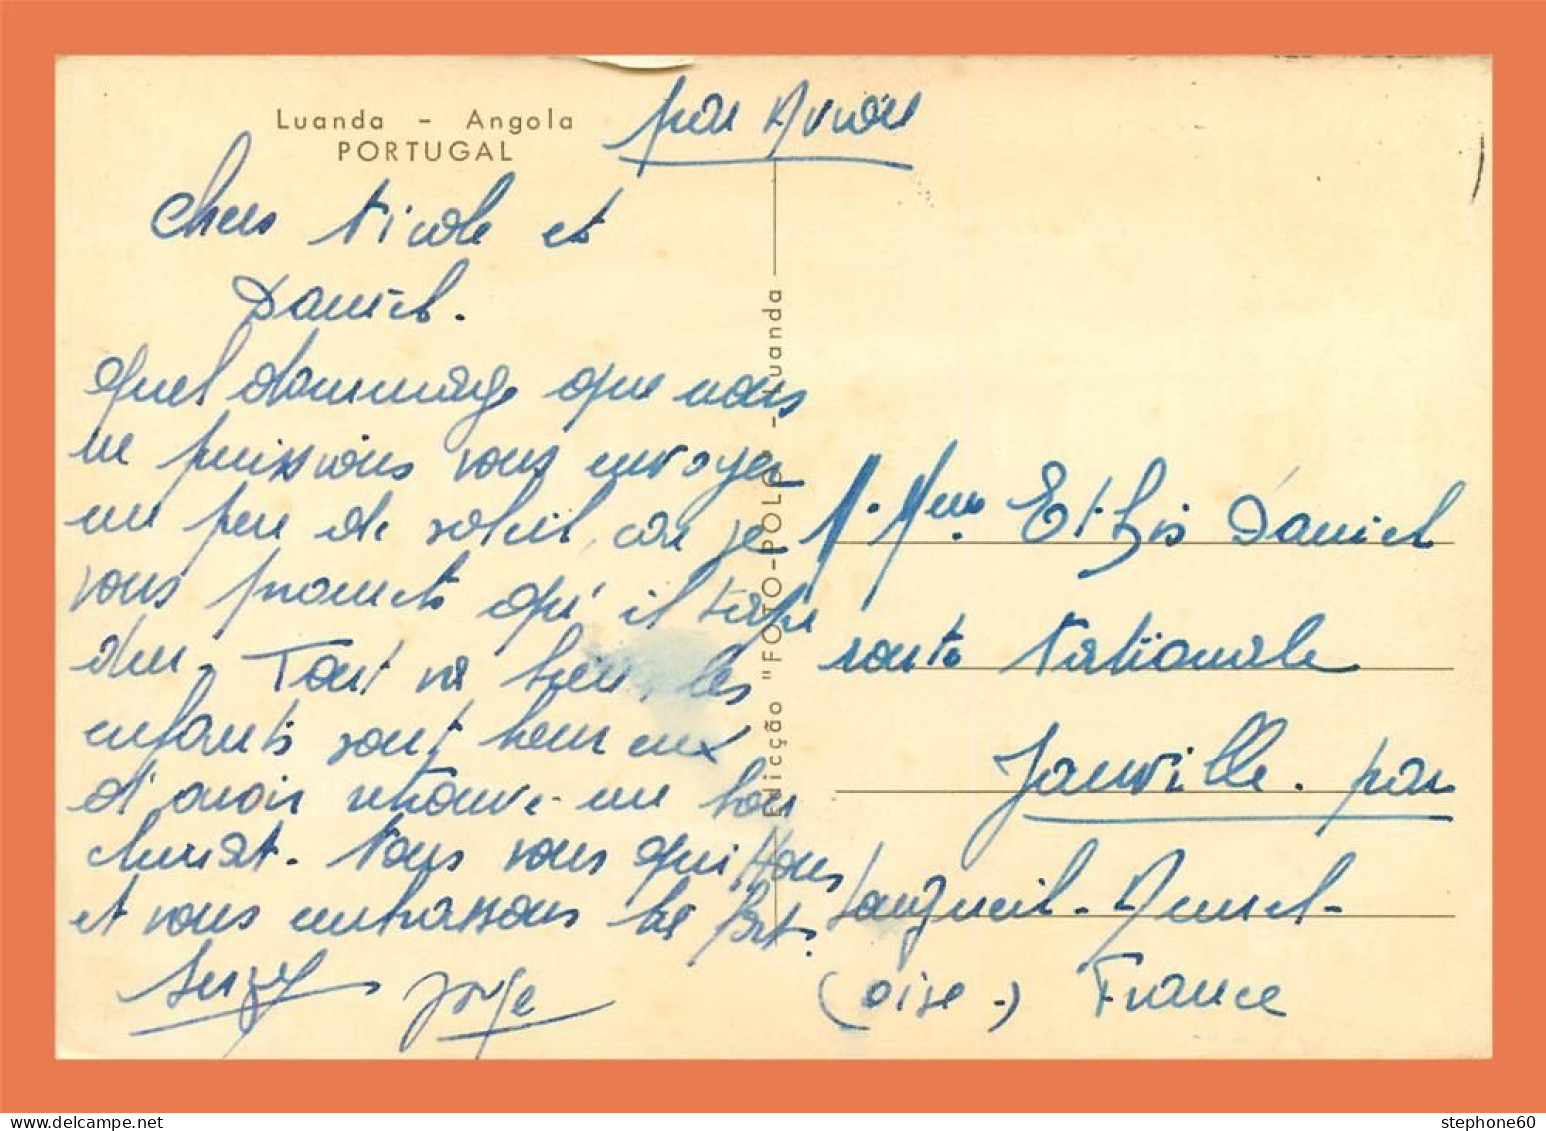 Luanda - Angola
PORTUGAL
par Avion
Chers Nicole et
Daniel.
quel dommage que nous
ne puissions vous envoyer
un peu de soleil, car je
vous promets qu'il tape
dur. Tout va bien, les
enfants sont heureux
d'avoir retrouvé un bon
climat. Nous vous quittons
et vous embrassons très fort.
Suzy Jorge
Edicção "FOTO-POLO" - Luanda
M. Mme Ethis Daniel
route Nationale
Janville. par
Longueil-Annel-
(oise-) France
stephone60